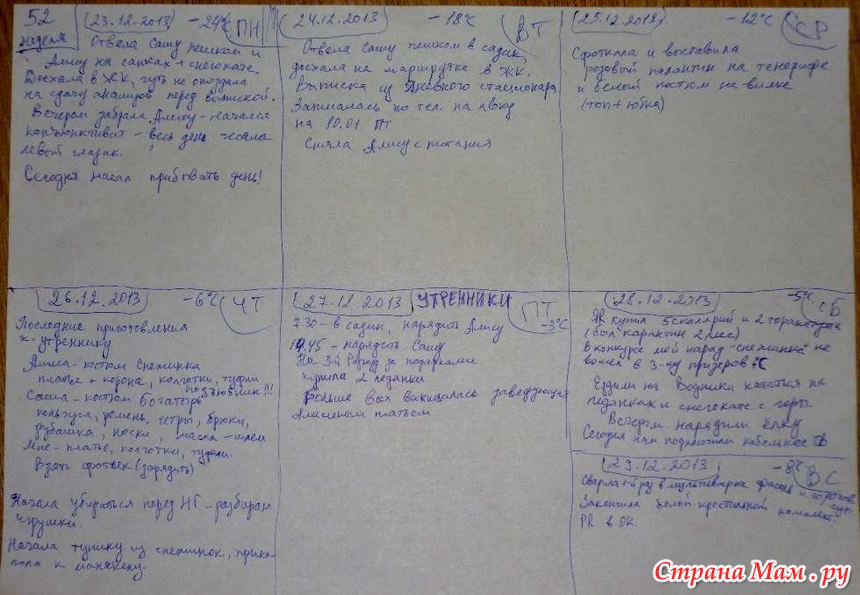 52 неделя
23.12.2013 -24°C ПН
Отвела Сашу пешком и
Алису на санках + снегокате.
Доехала в ЖК, чуть не опоздала
на сдачу анализов перед выпиской.
Вечером забрала Алису - начался
конъюнктивит - весь день чесала
левый глазик.
Сегодня начал прибывать день!
24.12.2013 -18°C ВТ
Отвела Сашу пешком в садик,
доехала на маршрутке в ЖК.
Выписка из дневного стационара
Записалась по тел. на явку
на 10.01 ПТ
Сняла Алису с питания
25.12.2013 -12°C СР
Сфоткала и выставила
розовый палантин на тенерифе
и белый костюм на вилке
(топ + юбка)
26.12.2013 -6°C ЧТ
Последние приготовления
к утреннику
Алиса - костюм Снежинка
платье + корона, колготки, туфли
Саша - костюм Богатырь
кольчуга, ремень, гетры, брюки,
рубашка, носки, маска - шлем
Мне - платье, колготки, туфли.
Взять фотик (зарядить)
Начала убираться перед НГ - разбираю
игрушки.
Начала тунику из снежинок, прико-
лола к манекену.
27.12.2013 УТРЕННИКИ ПТ -3°C
7.30 - в садик, нарядить Алису
- нарядить Сашу
На 3-й за подарками
купила 2 ледянки
Больше всех заведующая
Алисиным платьем
28.12.2013 -5°C СБ
купил 5 скалярий и 2
(был карантин 2 мес)
В конкурсе мой наряд "снежинка" не
вошел в 3-ку призеров :(
Ездили на Водники кататься на
ледянках и снегокате с горы.
Вечером нарядили ёлку
Сегодня нам подключили кабельное ТВ
29.12.2013 -8°C ВС
в мультиварке и гороховый
суп
Закончила белой крестильный комплект.
PR в ОК.
Страна Мам.ру